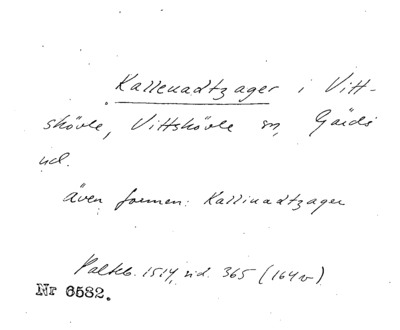 Kallenadtzager i Vitt-
skövle, Vittskövle sn, Gärds
hd.
även formen: Kallinadtzager
Palteb. 1514, sid. 365 (164v)
Nr 6582.